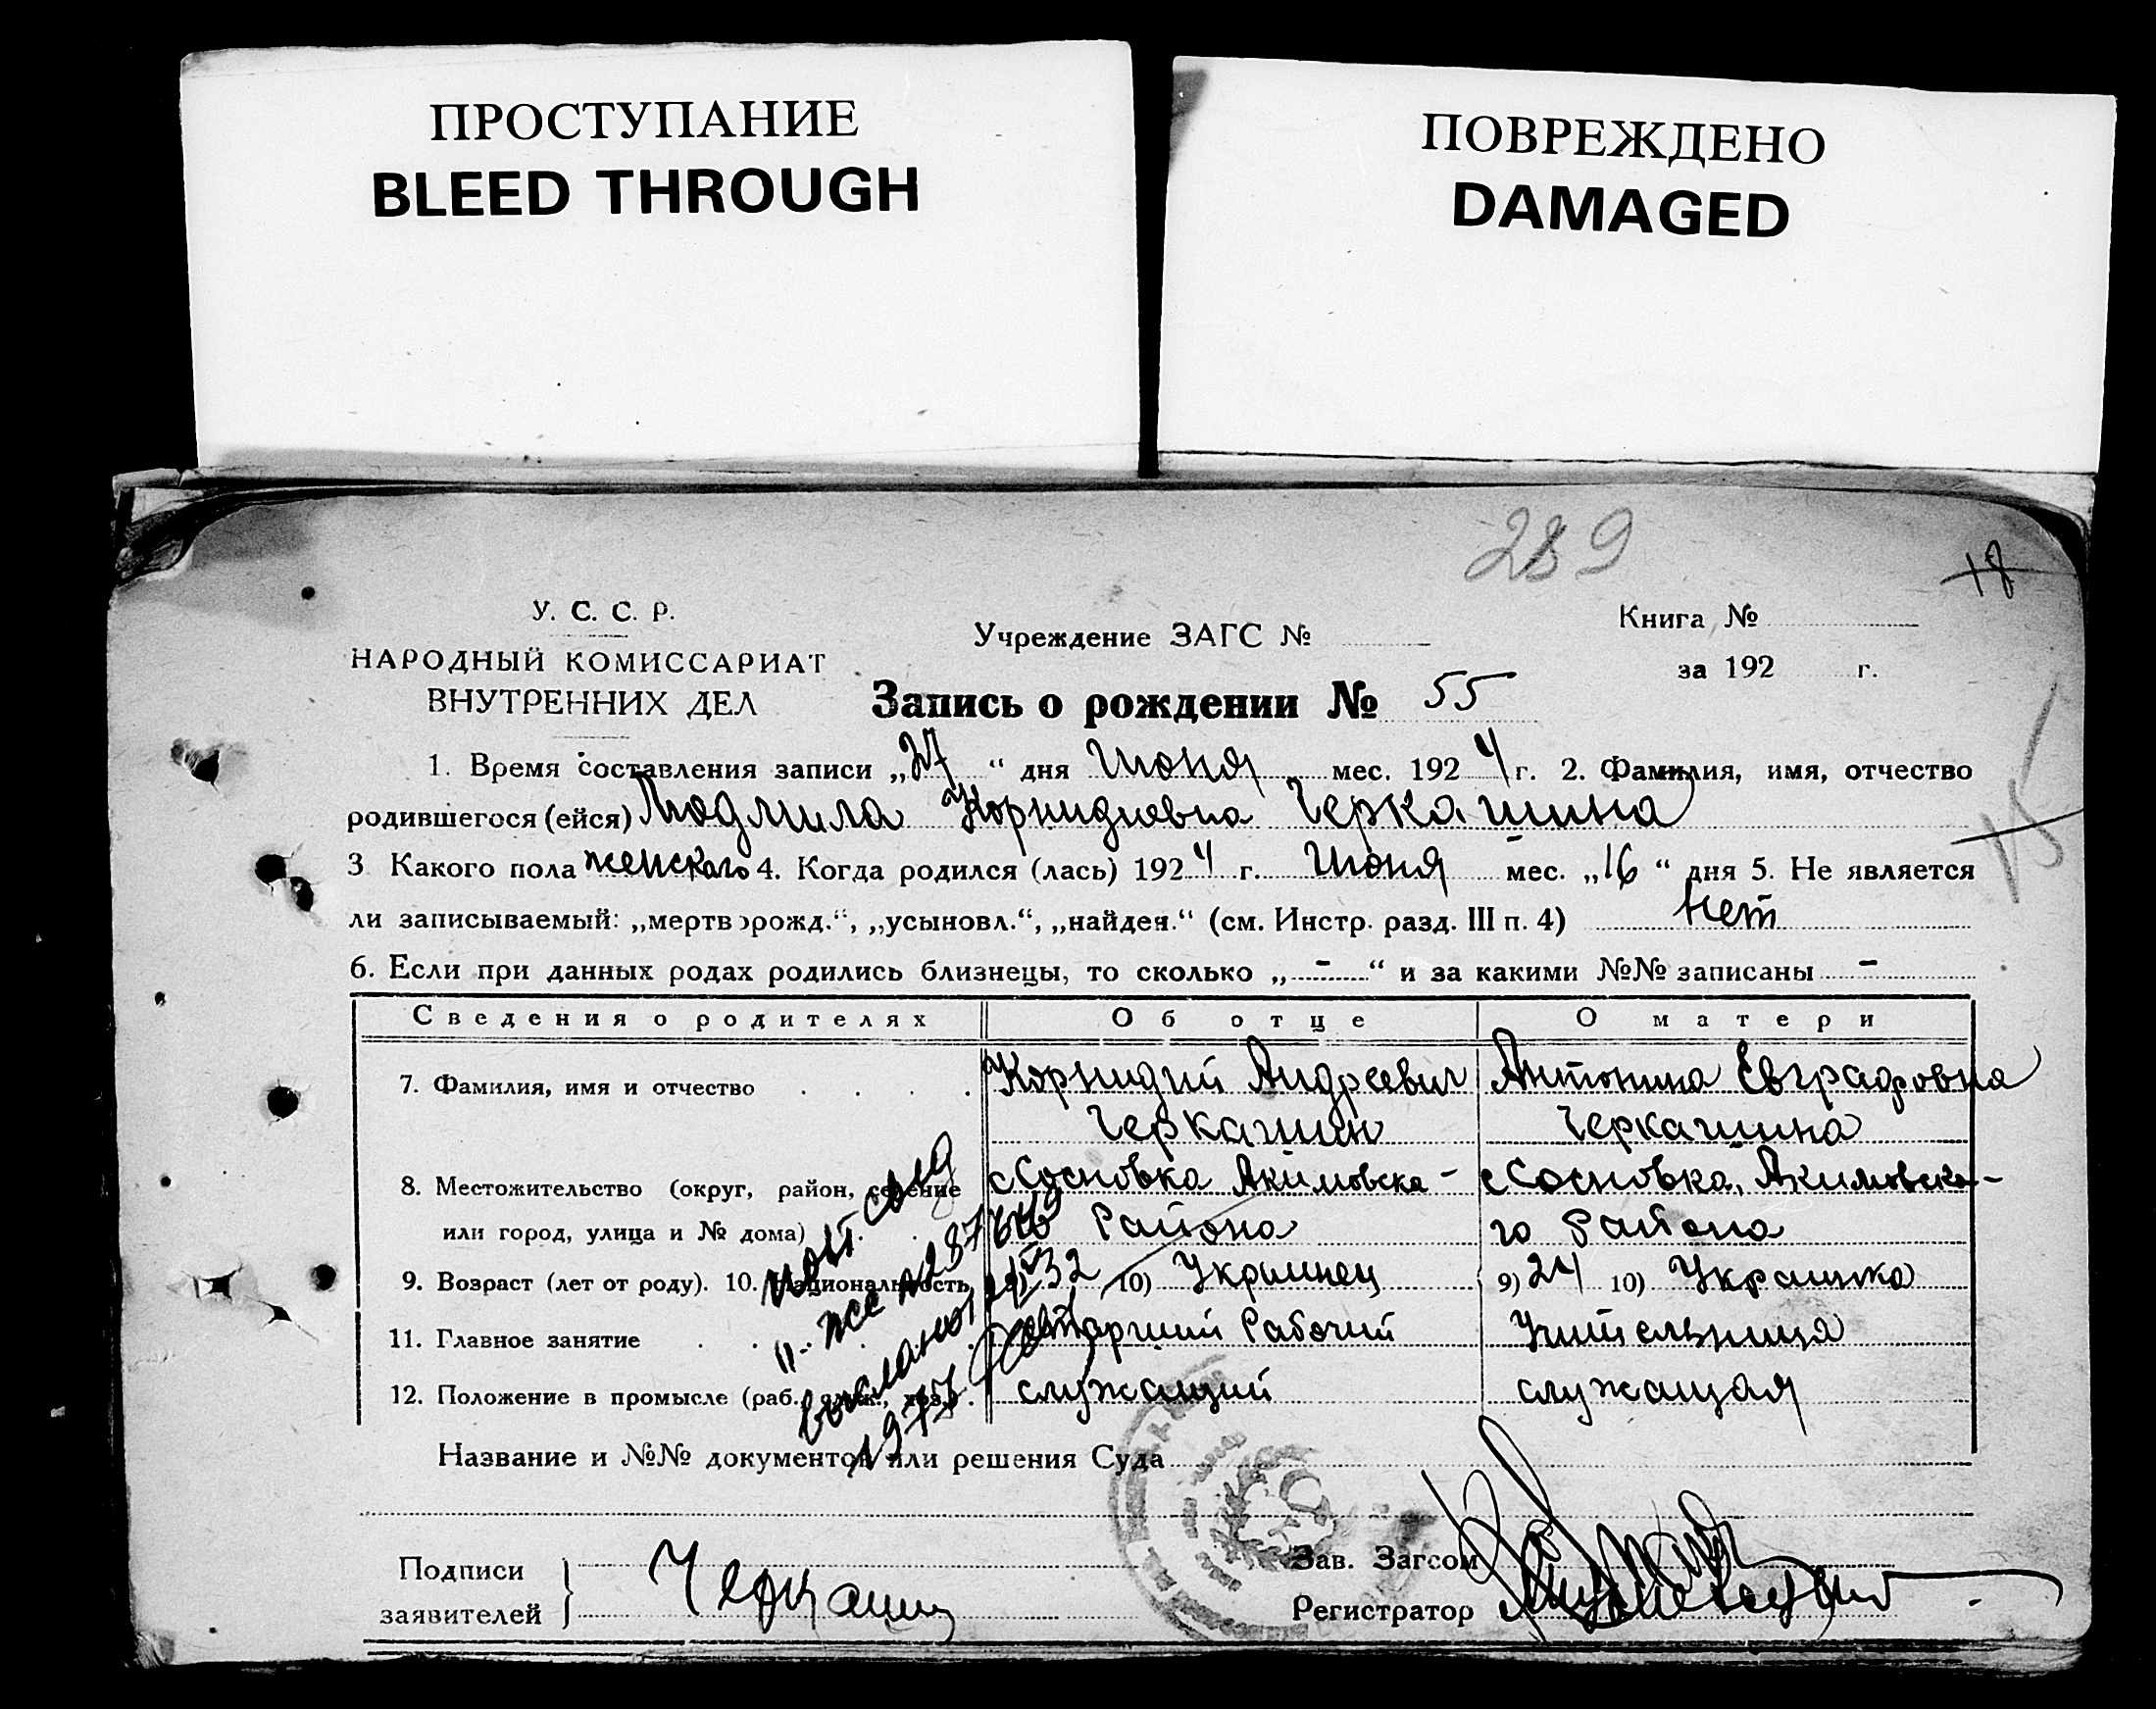 ПРОСТУПАНИЕ
BLEED THROUGH
ПОВРЕЖДЕНО
DAMAGED
289
18
У. С. С. Р.
НАРОДНЫЙ КОМИССАРИАТ
ВНУТРЕННИХ ДЕЛ
Учреждение ЗАГС №
Книга №
за 192 г.
Запись о рождении № 55
1. Время составления записи „27“ дня Июня мес. 1924 г. 2. Фамилия, имя, отчество
родившегося (ейся) Людмила Корнидиевна Черкашина
3 Какого пола женскаго 4. Когда родился (лась) 1924 г. Июня мес. „16“ дня 5. Не является
ли записываемый: „мертворожд.“, „усыновл.“, „найден.“ (см. Инстр. разд. III п. 4) Нет
6. Если при данных родах родились близнецы, то сколько „-“ и за какими №№ записаны -
Сведения о родителях Об отце О матери
7. Фамилия, имя и отчество Корнидий Андреевич Антонина Евграфовна
Черкашин Черкашина
8. Местожительство (округ, район, селение с Сосновка Акимовска- с Сосновка, Акимовска-
или город, улица и № дома) го Района го Района
9. Возраст (лет от роду). 10. Национальность 9) 32 10) Украинец 9) 24 10) Украинка
11. Главное занятие Старший Рабочий Учительница
12. Положение в промысле (раб., служ., хоз.) служащий служащая
Название и №№ документов или решения Суда
Подписи
заявителей
Черкашин
Зав. Загсом
Регистратор